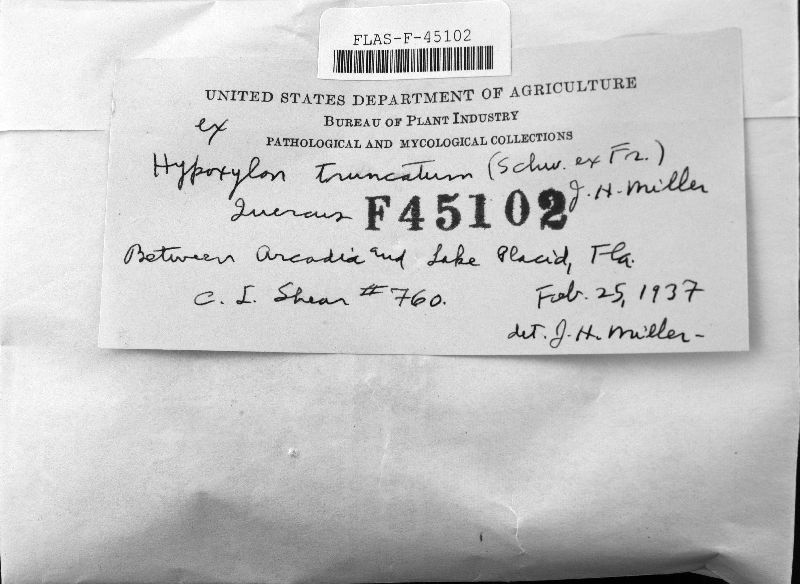 FLAS-F-45102
UNITED STATES DEPARTMENT OF AGRICULTURE
BUREAU OF PLANT INDUSTRY
ex
PATHOLOGICAL AND MYCOLOGICAL COLLECTIONS
Hypoxylon truncatum (Schw. ex Fr.)
J. H. Miller
Quercus F45102
Between Arcadia and Lake Placid, Fla.
C. L. Shear # 760. Feb. 25, 1937
det. J. H. Miller -